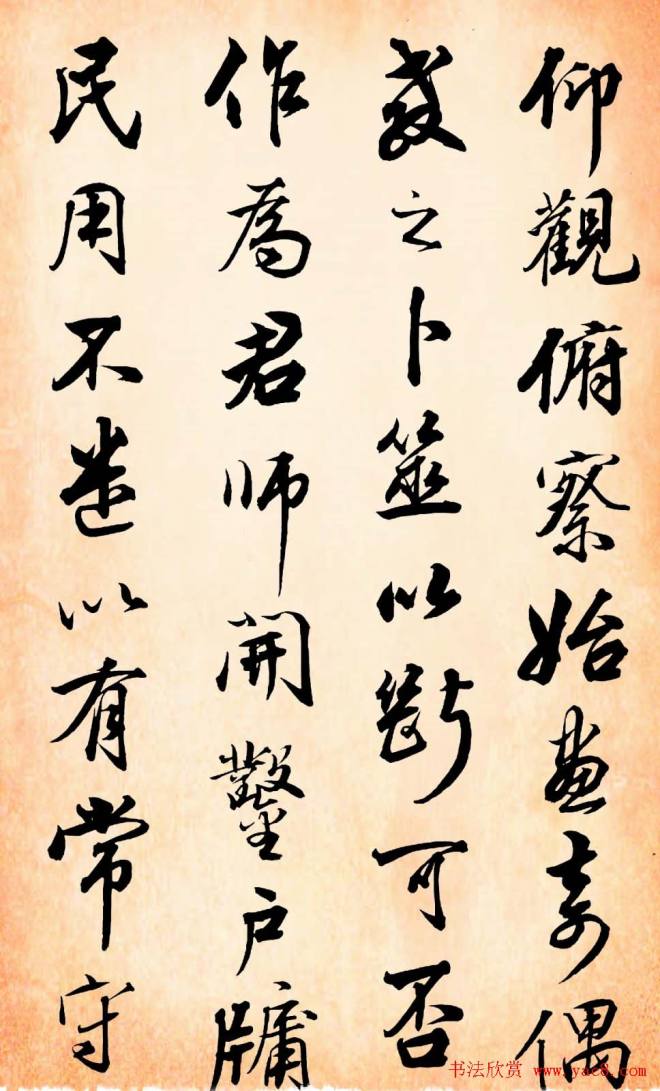 仰觀俯察始畫奇偶
教之卜筮以斷可否
作為君師開鑿戶牖
民用不迷以有常守
书法欣赏 www.yac8.com